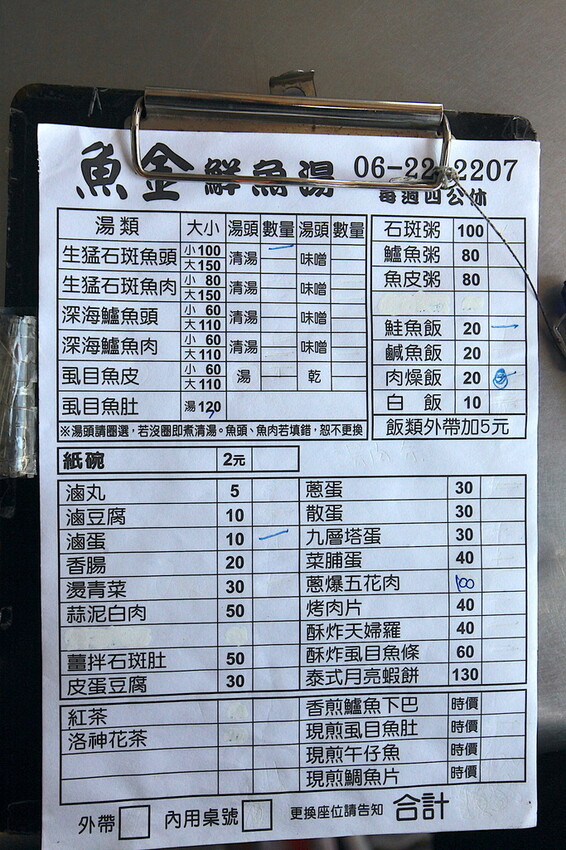 魚金 鮮魚湯 06-22 2207
每週四公休
湯類 大小 湯頭 數量 湯頭 數量
生猛石斑魚頭 小100 大150 清湯 味噌
生猛石斑魚肉 小 80 大150 清湯 味噌
深海鱸魚頭 小 60 大110 清湯 味噌
深海鱸魚肉 小 60 大110 清湯 味噌
虱目魚皮 小 60 大110 湯 乾
虱目魚肚 湯120
※湯頭請圈選,若沒圈即煮清湯。魚頭、魚肉若填錯,恕不更換
石斑粥 100
鱸魚粥 80
魚皮粥 80
鮭魚飯 20
鹹魚飯 20
肉燥飯 20
白 飯 10
飯類外帶加5元
紙碗 2元
滷丸 5
滷豆腐 10
滷蛋 10
香腸 20
燙青菜 30
蒜泥白肉 50
薑拌石斑肚 50
皮蛋豆腐 30
蔥蛋 30
散蛋 30
九層塔蛋 30
菜脯蛋 40
蔥爆五花肉 100
烤肉片 40
酥炸天婦羅 40
酥炸虱目魚條 60
泰式月亮蝦餅 130
紅茶
洛神花茶
香煎鱸魚下巴 時價
現煎虱目魚肚 時價
現煎午仔魚 時價
現煎鯛魚片 時價
外帶 內用桌號 更換座位請告知 合計